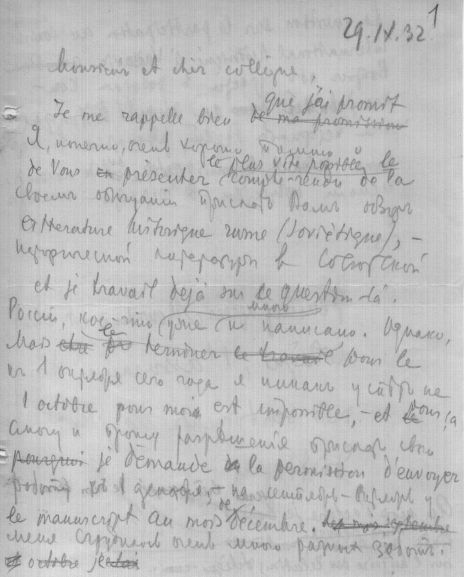 1
29.IX.32
Monsieur et cher collègue,
que j'ai promit
Je me rappelle bien de ma promission
Я, конечно, очень хорошо помню о
le plus vite possible le
de Vous présenter compte-rendu de la
своем обещании прислать Вам обзор
litterature historique russe (soviétique), –
исторической литературы в Советской
et je travail déjà sur ce question-là.
мною
России, кое-что уже и написано. Однако,
Mais terminer le travail pour le
к 1 октября сего года я никак успеть не
1 octobre pour moi est impossible, – et
смогу и прошу разрешения прислать свою
pourquoi je demande la permission d'envoyer
работу к 1 декабря, –
le manuscript au mois de Décembre.
меня очень много разных забот.
octobre